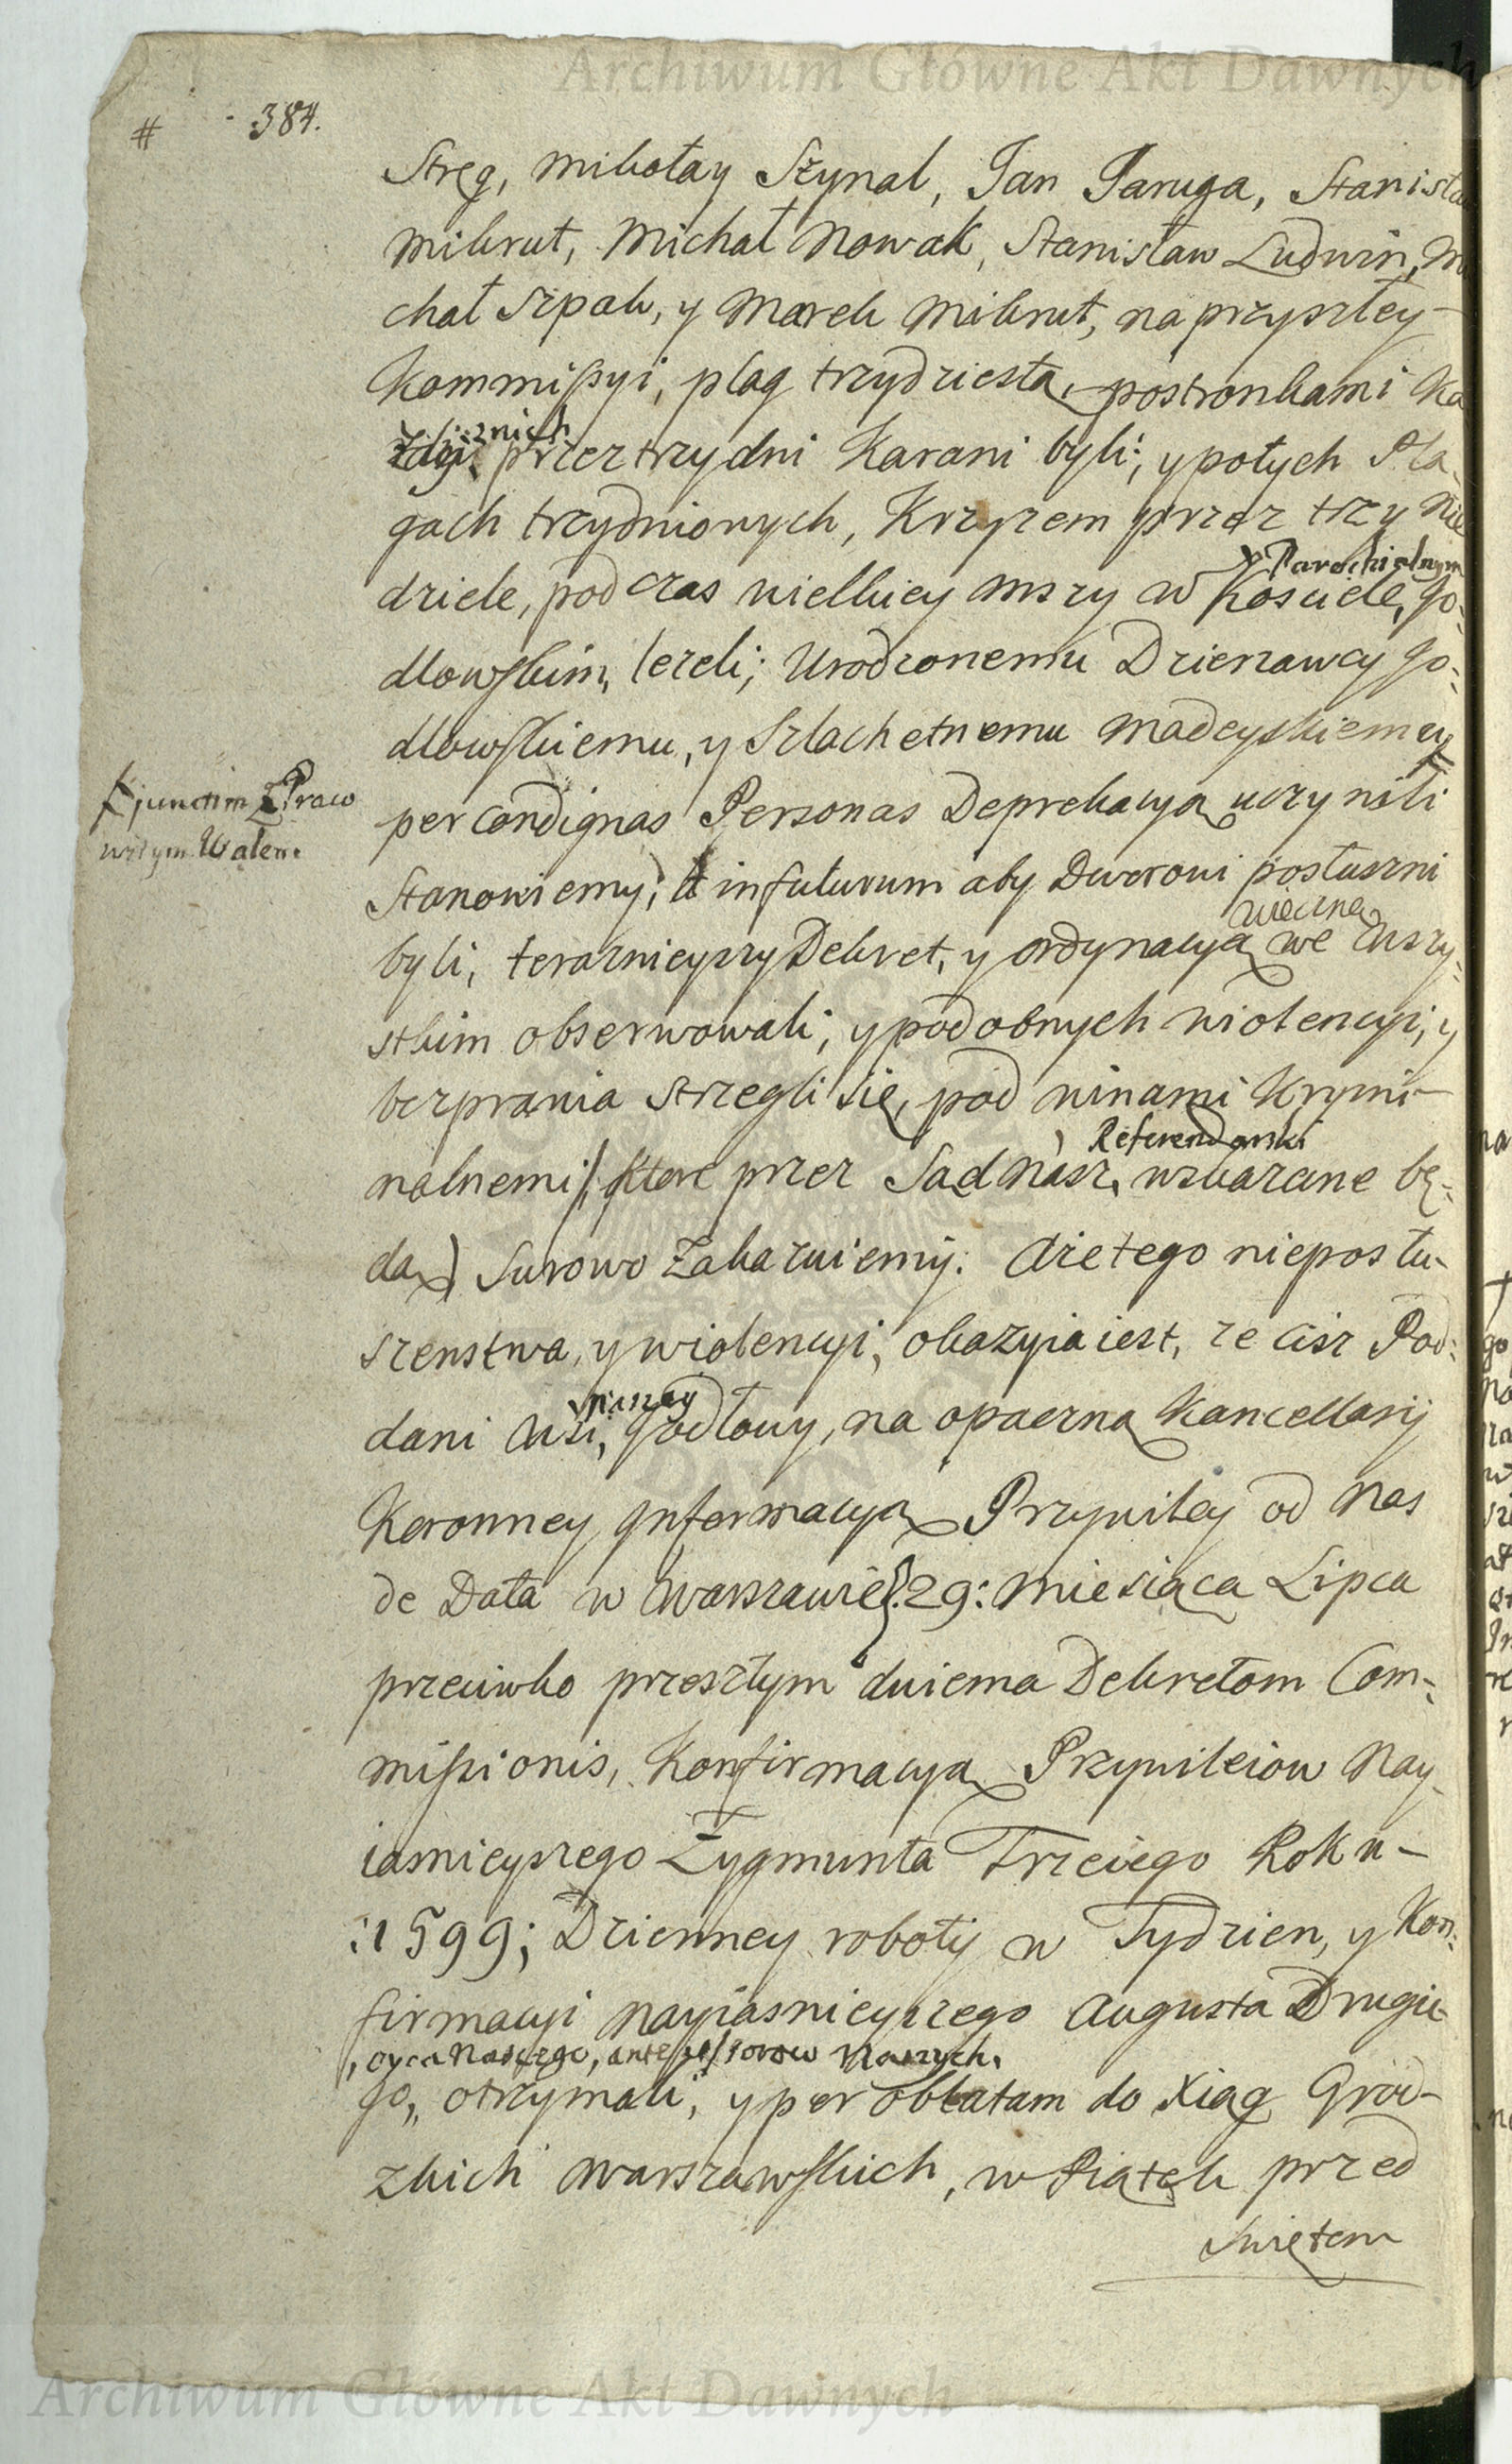 Archiwum Główne Akt Dawnych
# - 384.
Stręg, Mikołay Szynal, Jan Paruga, Stanisła
Mikrut, Michał Nowak, Stanisław Ludwin, Mi
chał Szpak, y Marek Mikrut, na przyszłey
Kommissyi, plag trzydziesta, postronkami Ka
żdy z nich przez trzy dni Karani byli; y po tych Pla-
gach trzydniowych, Krzyzem przez trzy Nie
dziele, pod czas wielkiey Mszy w Kosciele, Parochialnym Go-
dlowskim, lezeli; Urodzonemu Dzierzawcy Go-
dlowskiemu, y Szlachetnemu Madeyskiemu
junctim z Praco
witym Walen:
per condignas Personas Deprekacyą uczynili
Stanowiemy; A in futurum aby Dworowi posłuszni
byli, teraznieyszy Dekret, y ordynacyą wieczną we wszy-
stkim obserwowali; y podobnych wiolencyi, y
bezprawia strzegli się, pod winami Krymi-
nalnemi /które przez Sąd Nasz Referendarski wskazane bę-
dą) Surowo zakazuiemy. A ze tego nieposłu-
szenstwa, y wiolencyi, okazyia iest, ze ciż Pod-
dani Wsi, Naszey Godlowy, na opaczną Kancellaryi
Koronney Informacyą Przywiley od Nas
de Data w Warszawie 29: Miesiąca Lipca
przeciwko przeszłym dwiema Dekretom Com-
missionis, Konfirmacyą Przywileiow Nay-
iasnieyszego Zygmunta Trzeciego Roku
:1599; Dzienney roboty w Tydzien, y Kon-
firmacyi Nayiasnieyszego Augusta Drugie-
go, Oyca Naszego, antecessorow Naszych, otrzymali, y per oblatam do Xiąg Grod-
zkich Warszawskich, w Piątek przed
Swiętem
Archiwum Główne Akt Dawnych